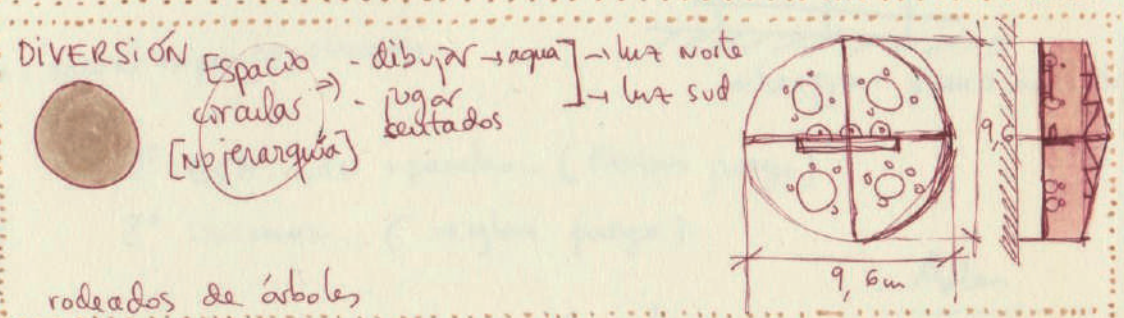 DIVERSIÓN
Espacio circular [No jerarquía]
- dibujar → agua ] → luz Norte
- jugar sentados → luz sud
9,6m
rodeados de árboles